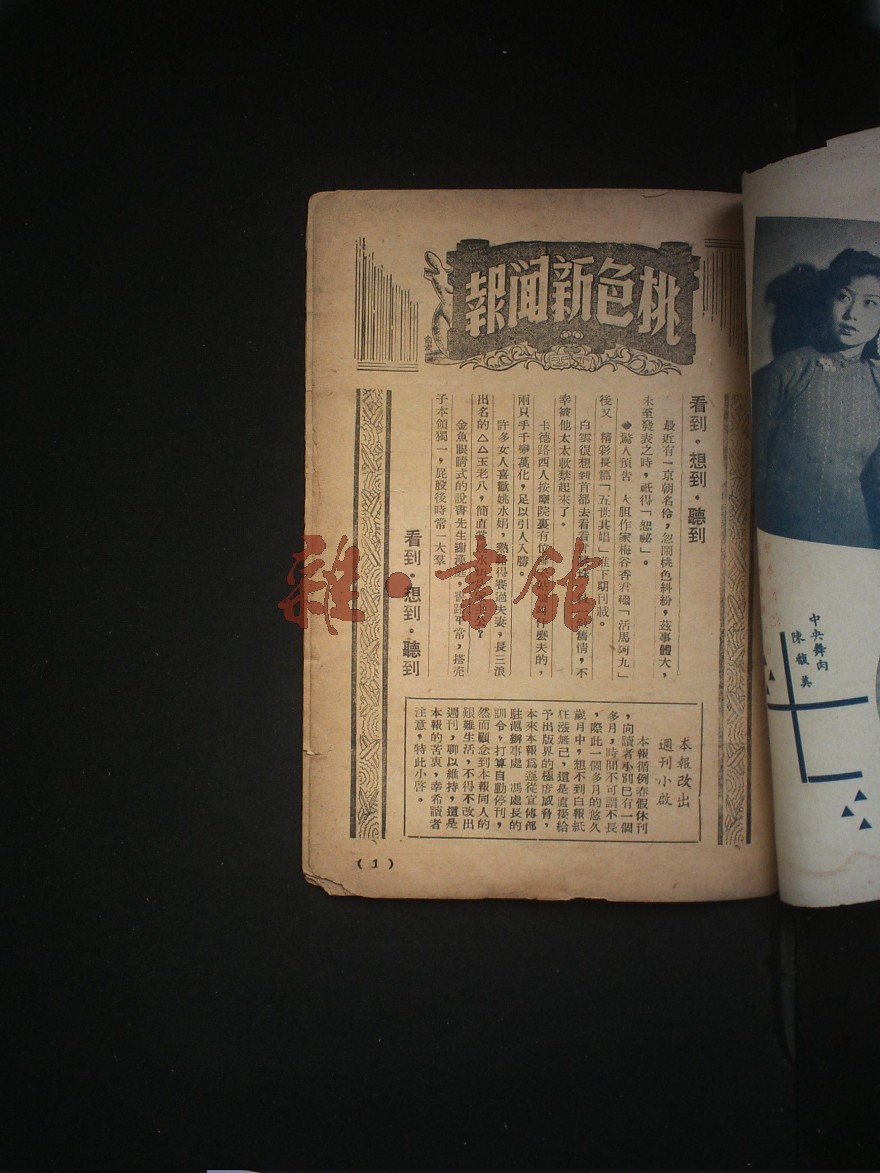 桃色新聞報
看到・想到・聽到
最近有一京朝名伶，忽鬧桃色糾紛，茲事體大，
未至發表之時，祇得「怨祕」。
◆驚人預告 大胆作家梅谷香君繼「活馬阿九」
後又 精彩長篇「五世其娼」准下期刊載。
白雲很想到首都去看看 舊情，不
幸被他太太軟禁起來了。
卡德路西人按摩院裏有位 什麼夫的，
兩只手千變萬化，足以引人入勝。
許多女人喜歡姚水娟，熱絡得賽過夫妻，長三浪
出名的△△王老八，簡直當 水娟 公？
金魚眼睛式的說書先生謝漢庭，書 平常，搭壳
子本領獨一，屁股後時常一大羣
看到・想到・聽到
本報改出
週刊小啟
本報循例春假休刊
，向讀者小別已有一個
多月，時間不可謂不長
，際此一個多月的悠久
歲月中，想不到白報紙
狂漲無已，還是直接給
予出版界的極度威脅，
本來本報為遵從宣傳部
駐滬辦事處 馮處長的
訓令，打算自動停刊，
然而顧念到本報同人的
艱難生活，不得不改出
週刊，聊以維持，還是
本報的苦衷，幸希讀者
注意，特此小啓。
(1)
中央舞肉
陳馥美
雜・書館